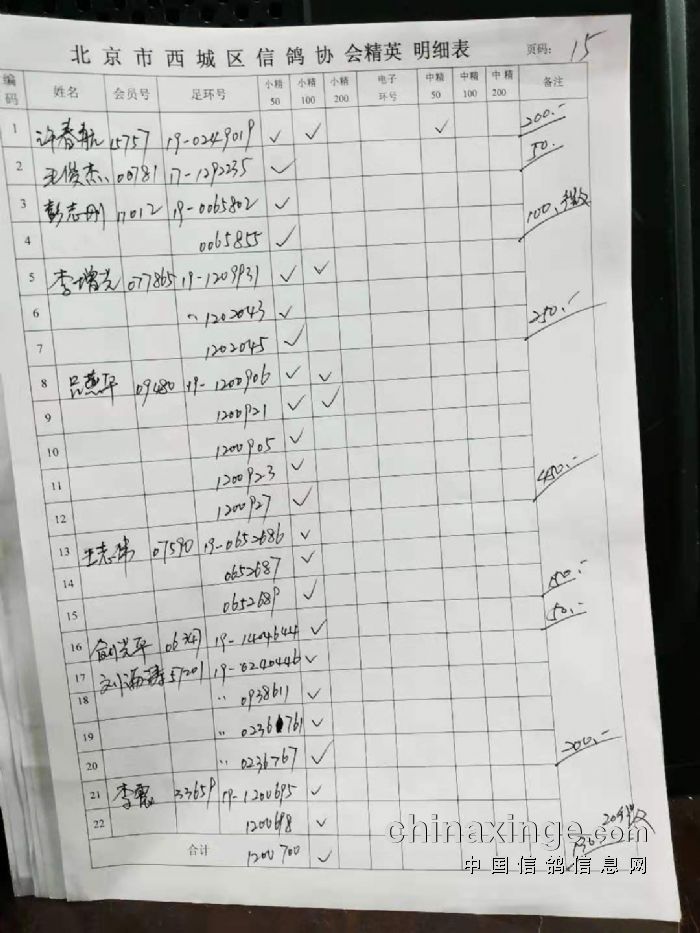 北京市西城区信鸽协会精英明细表 页码: 15
编码 姓名 会员号 足环号 小精50 小精100 小精200 电子环号 中精50 中精100 中精200 备注
1 许春航 15757 19-0249019 ✓ ✓ ✓ 200.-
2 王俊杰 00781 17-1292235 ✓ 50.-
3 彭志刚 17012 19-0065802 ✓
4 0065855 ✓ 100.
5 李增光 077865 19-1209931 ✓ ✓
6 〃1202043 ✓
7 1202045 ✓ 250.-
8 吕燕平 09480 19-1200906 ✓ ✓
9 1200921 ✓ ✓
10 1200905 ✓
11 1200923 ✓
12 1200927 ✓ 450.-
13 王志伟 07590 19-0652686 ✓
14 0652687 ✓
15 0652689 ✓ 150.-
16 俞光平 19-1404644 ✓ 50.-
17 刘海涛 57201 19-0240446 ✓
18 〃 0938611 ✓
19 〃 0236761 ✓
20 〃 0236767 ✓ 200.-
21 李震 33659 19-1200695 ✓
22 1200698 ✓
合计 1200700 ✓
chinaxinge.com
中国信鸽信息网